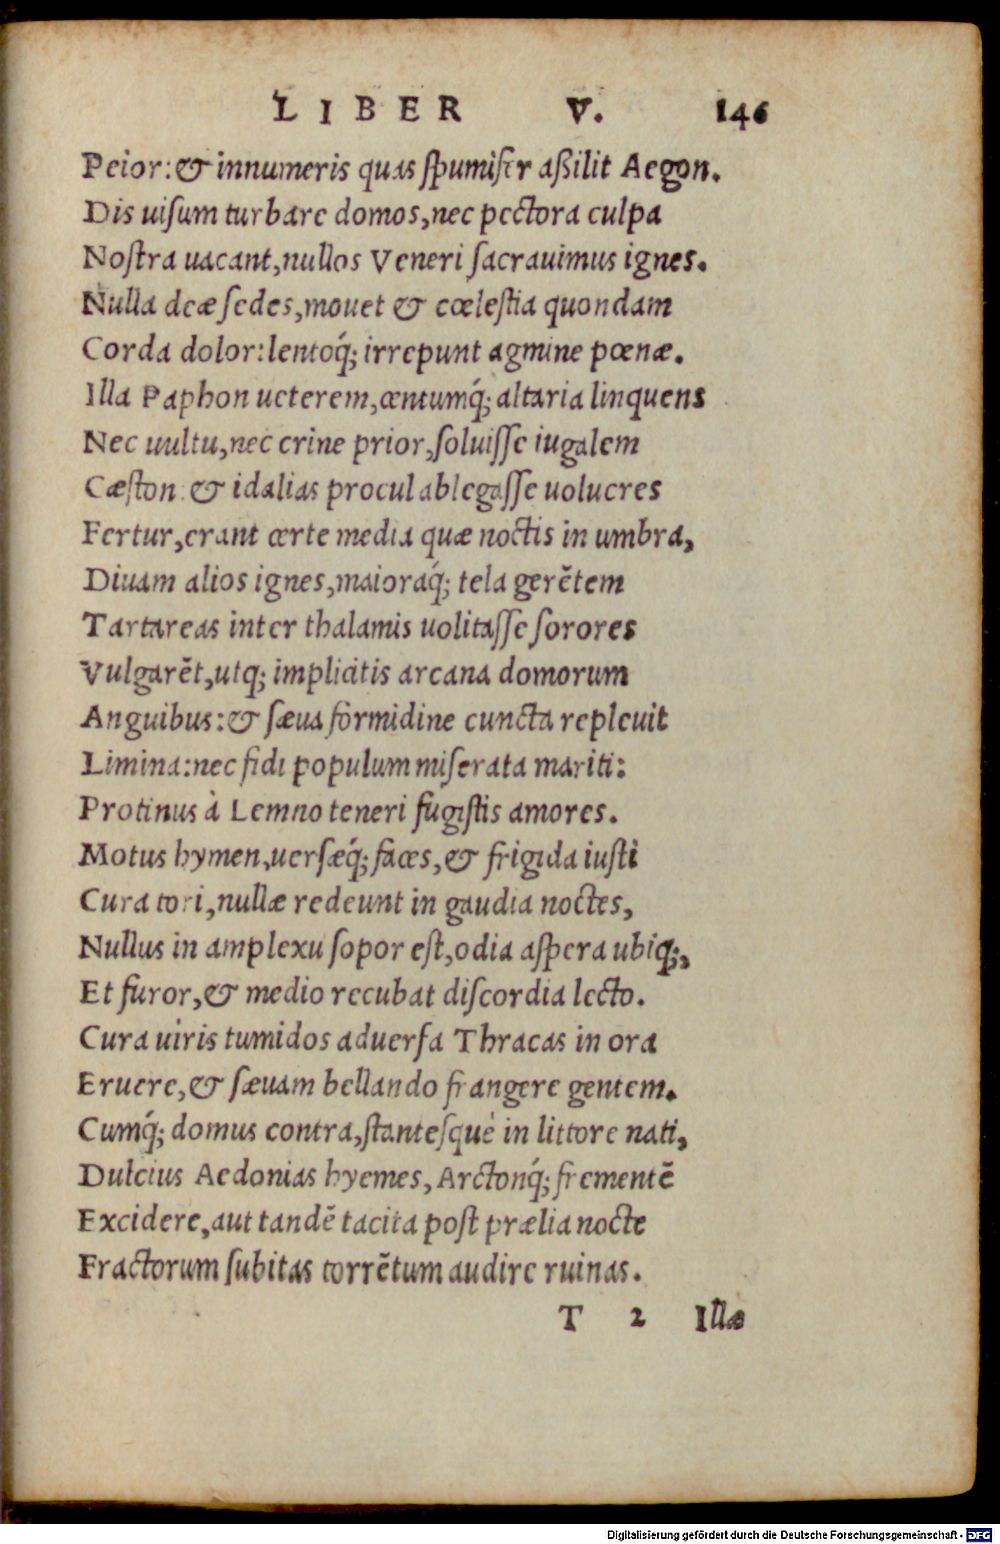 LIBER V. 146
Peior: & innumeris quas spumifer aßilit Aegon.
Dis uisum turbare domos, nec pectora culpa
Nostra uacant, nullos Veneri sacrauimus ignes.
Nulla deæ sedes, mouet & cœlestia quondam
Corda dolor: lentoq́; irrepunt agmine pœnæ.
Illa Paphon ueterem, centumq́; altaria linquens
Nec uultu, nec crine prior, soluisse iugalem
Cæston & idalias procul ablegasse uolucres
Fertur, erant certe media quæ noctis in umbra,
Diuam alios ignes, maioraq́; tela gerẽtem
Tartareas inter thalamis uolitasse sorores
Vulgarẽt, utq; implicitis arcana domorum
Anguibus: & sæua formidine cuncta repleuit
Limina: nec fidi populum miserata mariti:
Protinus à Lemno teneri fugistis amores.
Motus hymen, uersæq́; faces, & frigida iusti
Cura tori, nullæ redeunt in gaudia noctes,
Nullus in amplexu sopor est, odia aspera ubiq;,
Et furor, & medio recubat discordia lecto.
Cura uiris tumidos aduersa Thracas in ora
Eruere, & sæuam bellando frangere gentem.
Cumq́; domus contra, stantesquè in littore nati,
Dulcius Aedonias hyemes, Arctonq́; frementẽ
Excidere, aut tandẽ tacita post prælia nocte
Fractorum subitas torrẽtum audire ruinas.
T 2 Illæ
Digitalisierung gefördert durch die Deutsche Forschungsgemeinschaft - DFG